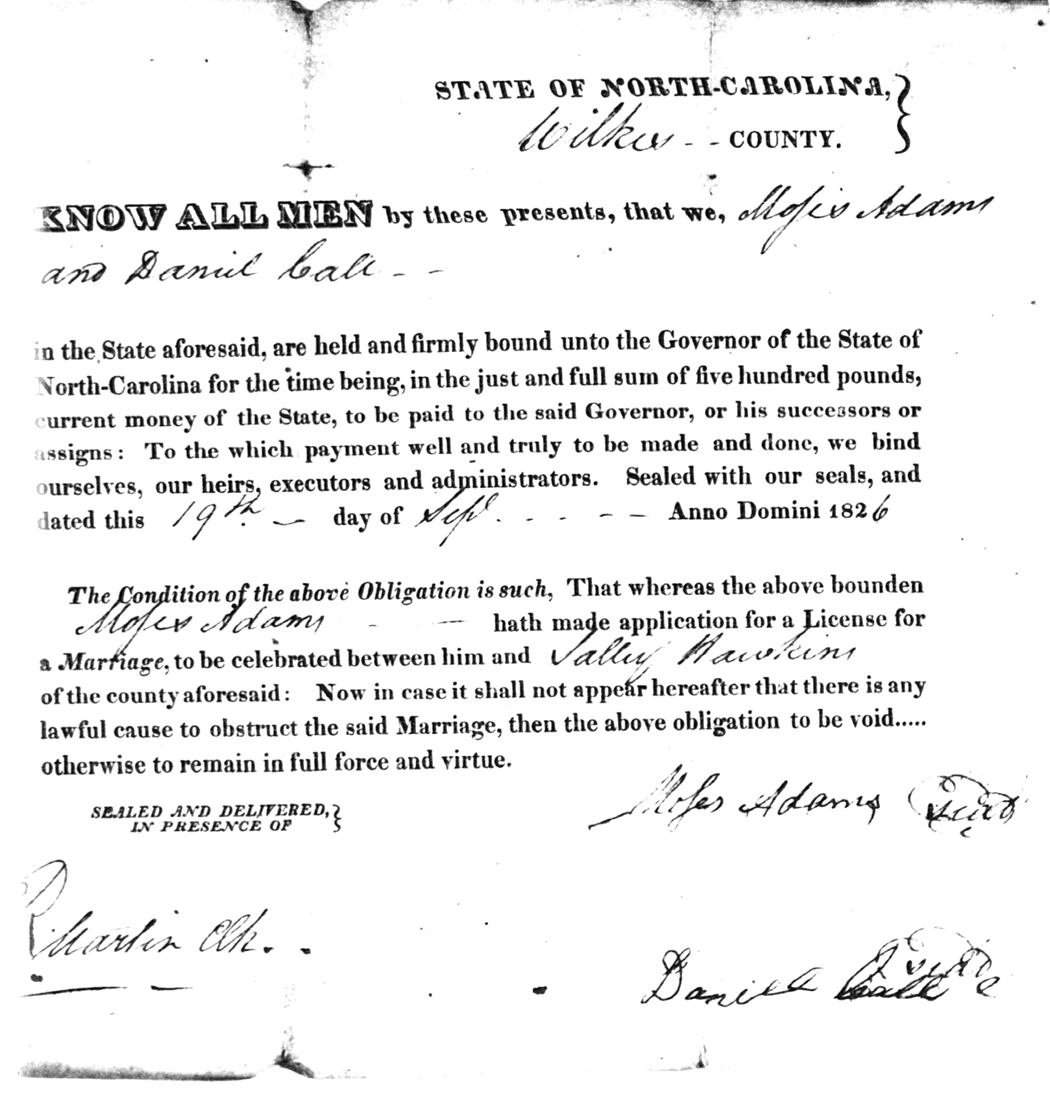 STATE OF NORTH-CAROLINA,
Wilkes - - COUNTY.
KNOW ALL MEN by these presents, that we, Moses Adams
and Daniel Call - -
in the State aforesaid, are held and firmly bound unto the Governor of the State of
North-Carolina for the time being, in the just and full sum of five hundred pounds,
current money of the State, to be paid to the said Governor, or his successors or
assigns: To the which payment well and truly to be made and done, we bind
ourselves, our heirs, executors and administrators. Sealed with our seals, and
dated this 19th — day of Sept. - - - - Anno Domini 1826
The Condition of the above Obligation is such, That whereas the above bounden
Moses Adams - — hath made application for a License for
a Marriage, to be celebrated between him and Salley Hawkins
of the county aforesaid: Now in case it shall not appear hereafter that there is any
lawful cause to obstruct the said Marriage, then the above obligation to be void.....
otherwise to remain in full force and virtue.
SEALED AND DELIVERED,
IN PRESENCE OF
Moses Adams Seal
R Martin Clk.
Daniel Call Seal